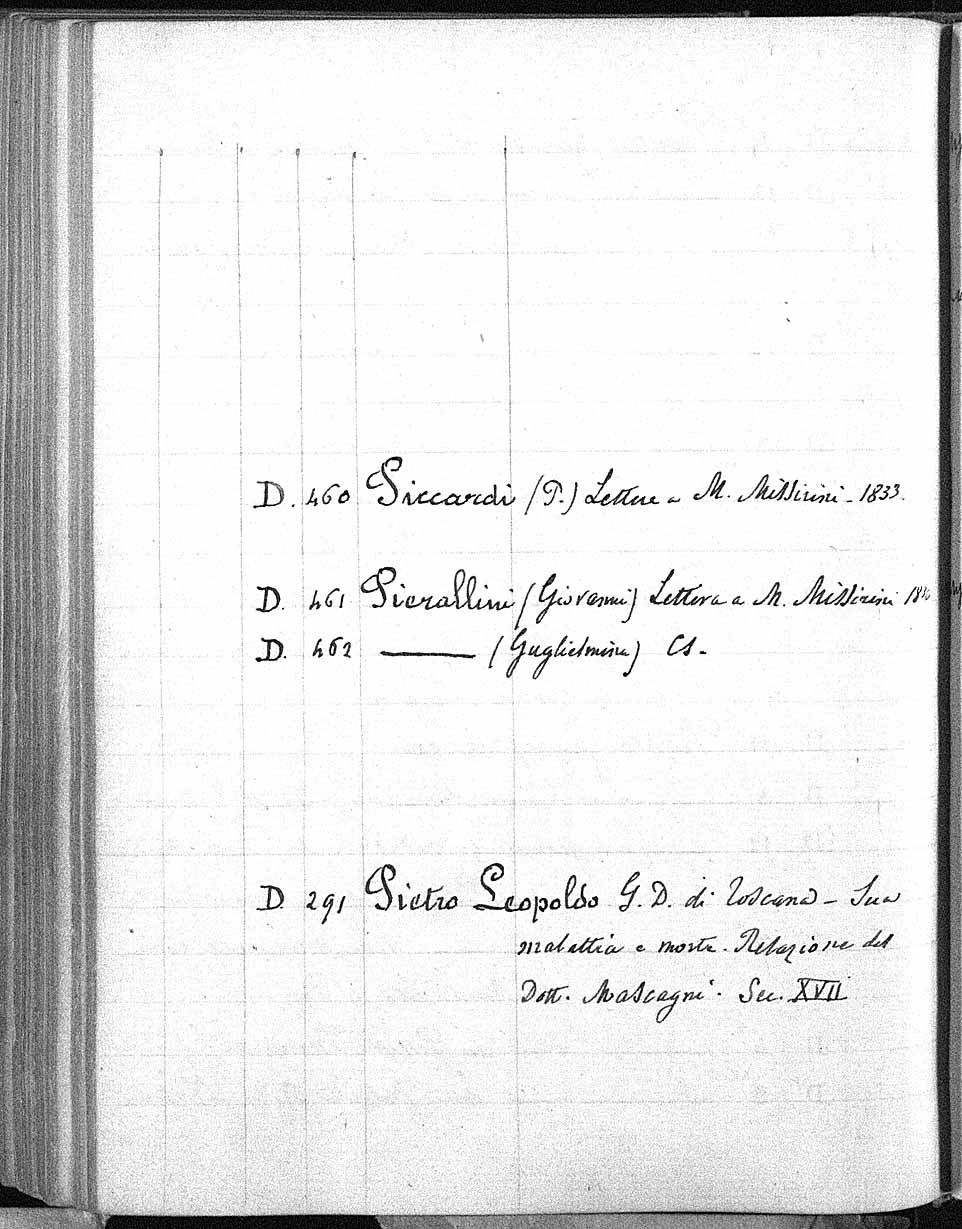 D. 460 Piccardi (P.) Lettere a M. Missirini - 1833.
D. 461 Pierallini (Giovanni) Lettera a M. Missirini
D. 462 ——— (Guglielmina) Cs.
D. 291 Pietro Leopoldo G. D. di Toscana - Sua
malattia e morte. Relazione del
Dott. Mascagni. Sec. XVII